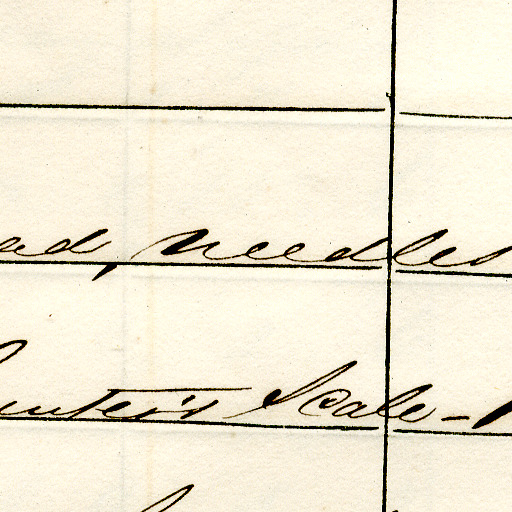 ad, needles
unter's Scale -